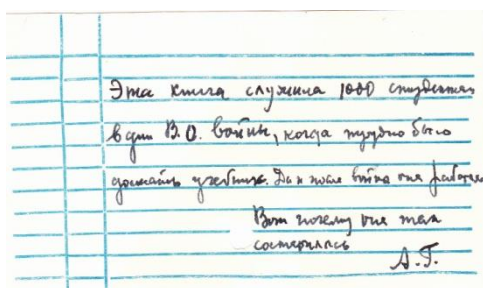 Эта книга служила 1000 студентам
в дни В.О. войны, когда трудно было
доставать учебники. Да и после войны она работала
Вот почему она так
состарилась
А.Г.